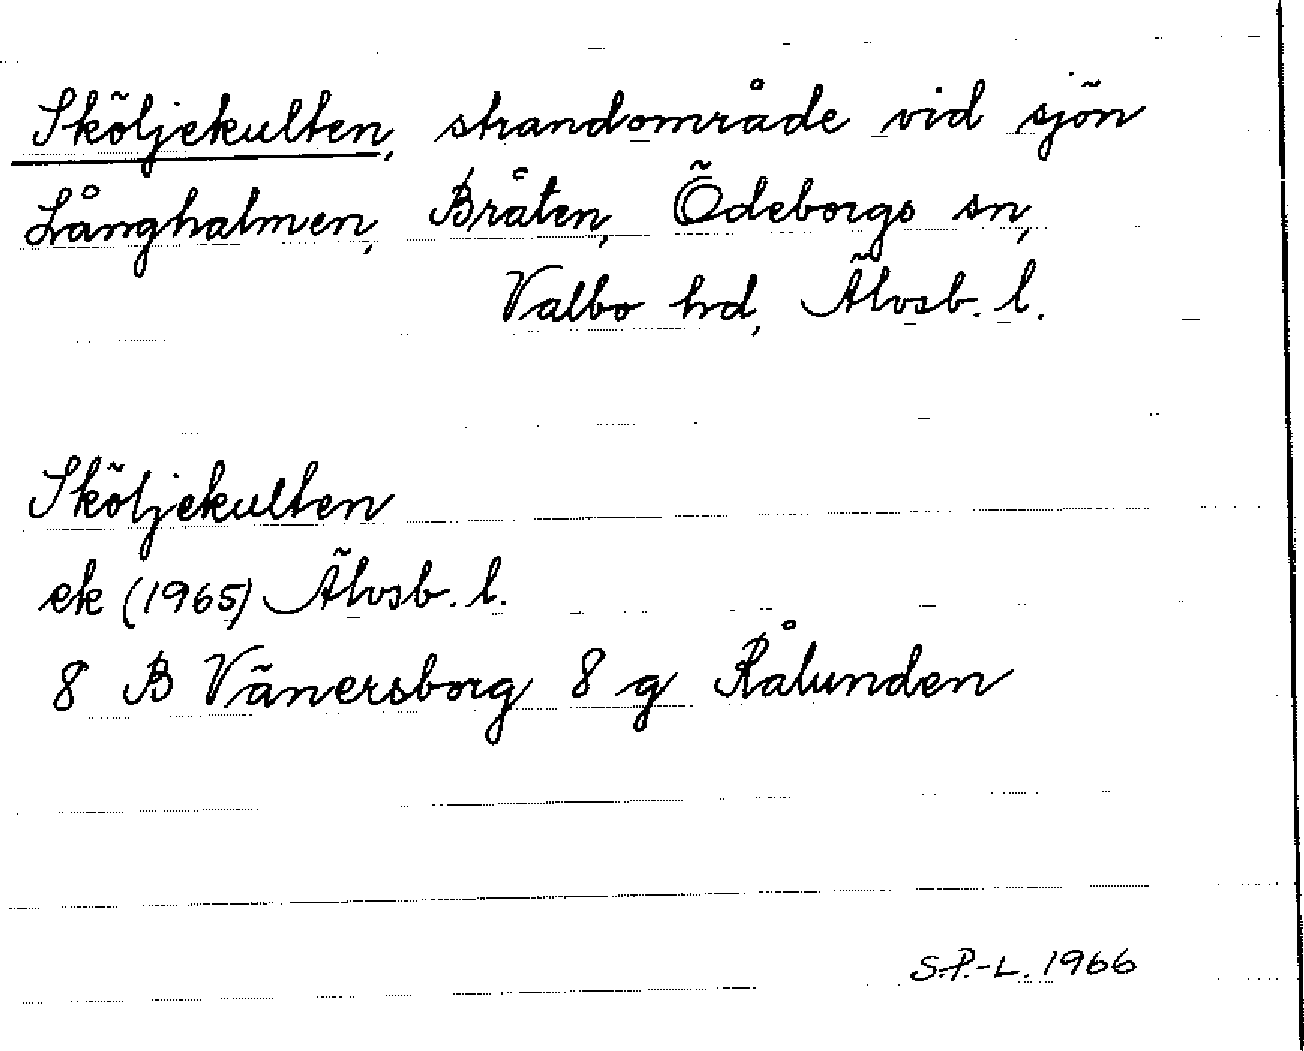 Sköljekulten, strandområde vid sjön
Långhalmen, Bråten, Ödeborgs sn,
Valbo hd, Älvsb. l.
Sköljekulten
ek (1965) Älvsb. l.
8 B Vänersborg 8 g Rålunden
S.P.-L. 1966